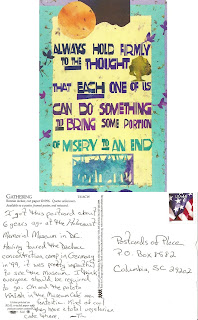 ALWAYS HOLD FIRMLY
TO THE THOUGHT
THAT EACH ONE OF US
CAN DO SOMETHING
TO BRING SOME PORTION
OF MISERY TO AN END
GATHERING
I got this postcard about
6 years ago at the Holocaust
Memorial Museum in DC.
Having toured the Dachau
concentration camp in Germany
in '99, it was pretty
to see the museum. I think
everyone should be required
to go. Oh and the potato
Knish in the Museum Cafe are
fantastic. Kind of
they have a total vegetarian
cafe there.
Postcards of Place
P.O. Box 1582
Columbia, SC 29202